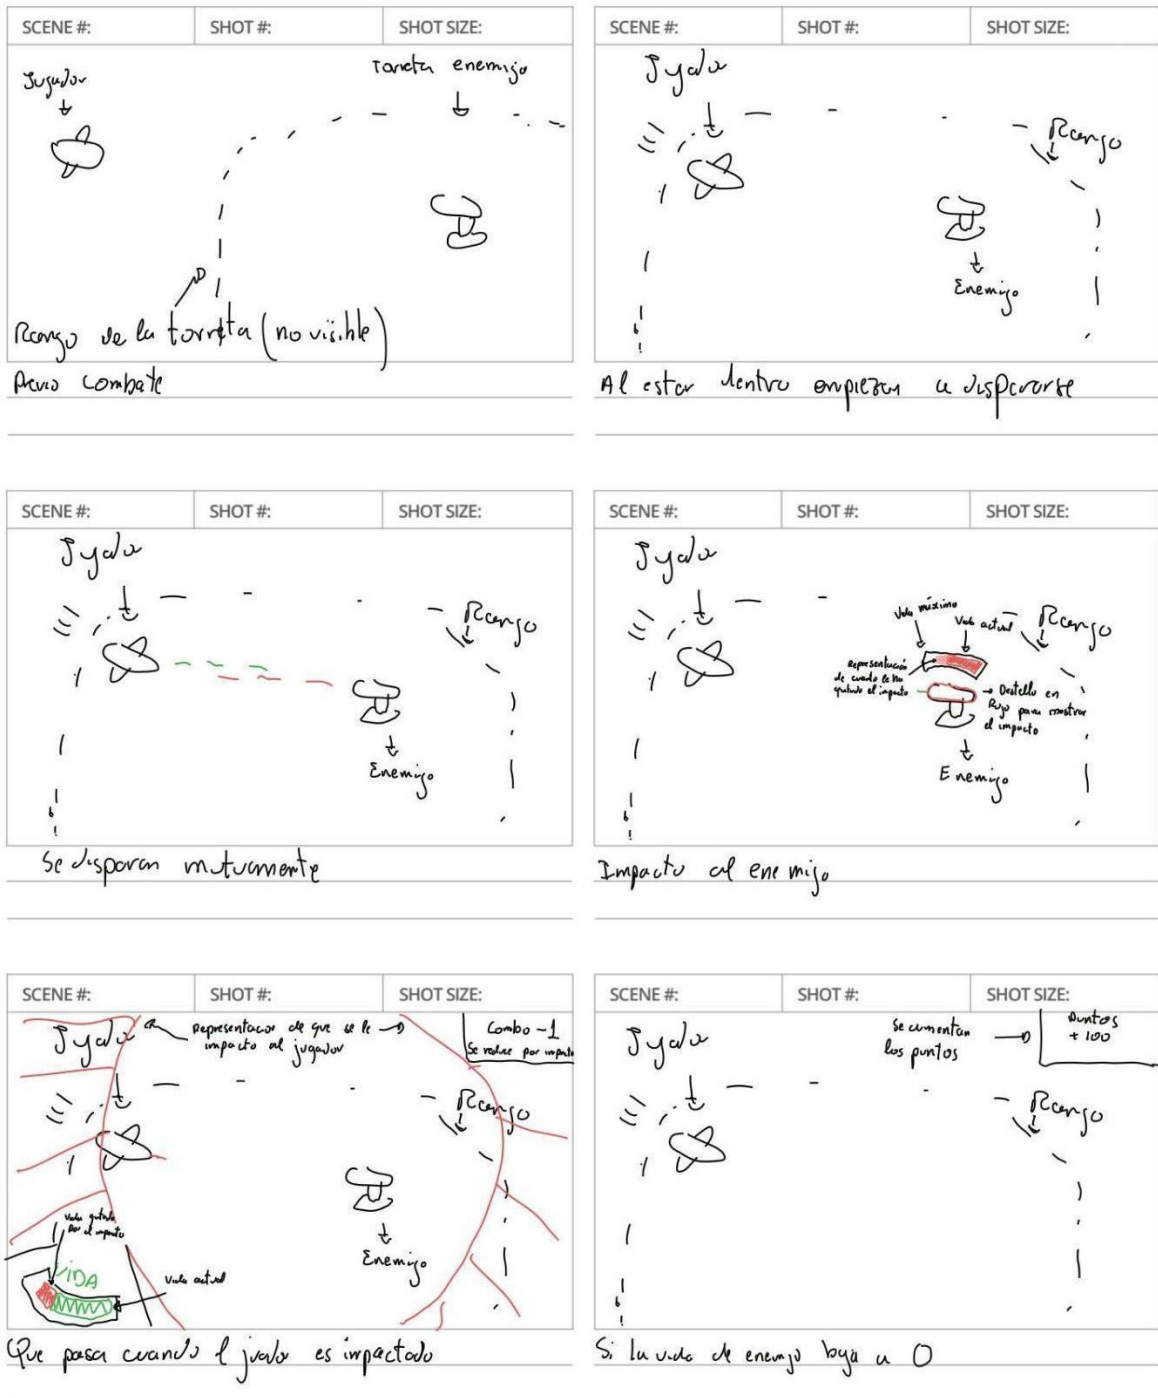 SCENE #: SHOT #: SHOT SIZE:
Jugador
Torreta enemigo
Rango de la torreta (no visible)
Previo combate
SCENE #: SHOT #: SHOT SIZE:
Jugador
Rango
Enemigo
Al estar dentro empiezan a dispararse
SCENE #: SHOT #: SHOT SIZE:
Jugador
Rango
Enemigo
Se disparan mutuamente
SCENE #: SHOT #: SHOT SIZE:
Jugador
Vida máximo
Vida actual
Rango
Representación
de cuanto le ha
quitado el impacto
Destello en
Rojo para mostrar
el impacto
Enemigo
Impacto al enemigo
SCENE #: SHOT #: SHOT SIZE:
Jugador
Representacion de que se le
impacto al jugador
Combo -1
Se reduce por impacto
Rango
Enemigo
Vida quitada
Por el impacto
ViDA
Vida actual
Que pasa cuando el jugador es impactado
SCENE #: SHOT #: SHOT SIZE:
Jugador
Se aumentan
los puntos
Puntos
+ 100
Rango
Si la vida de enemigo baja a 0